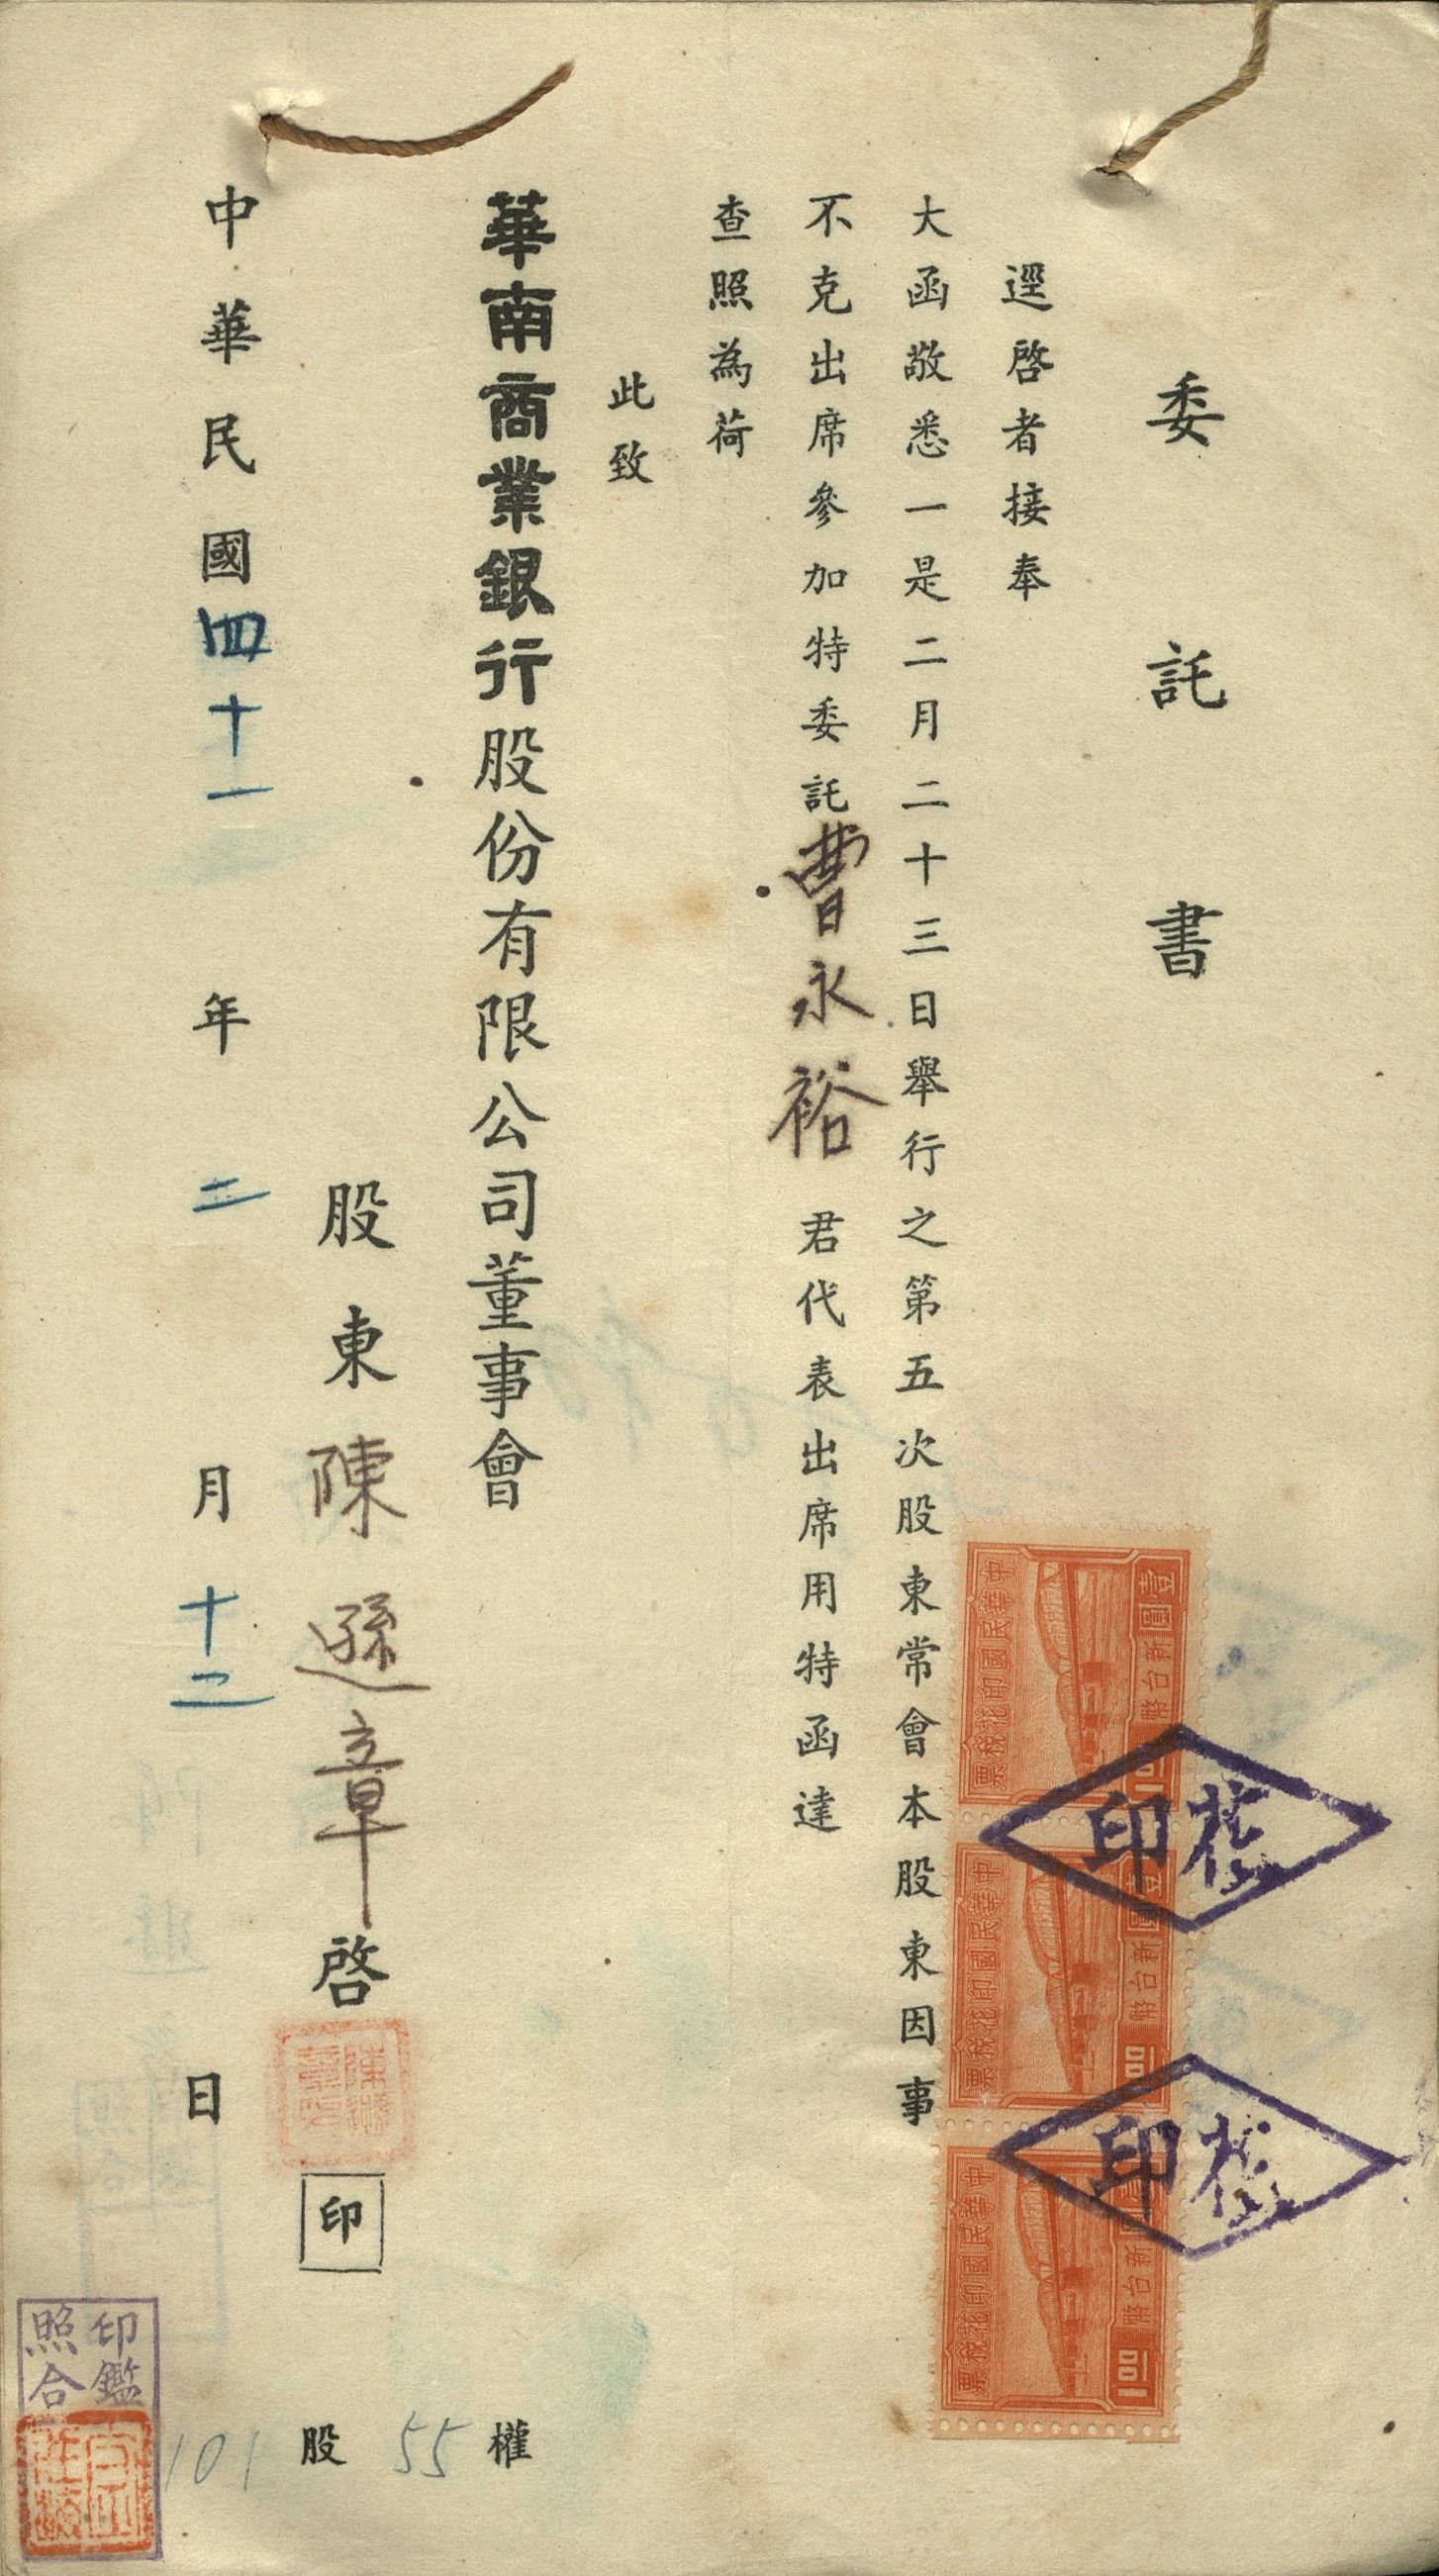 委託書
逕啓者接奉
大函敬悉一是二月二十三日舉行之第五次股東常會本股東因事
不克出席參加特委託曹永裕君代表出席用特函達
查照為荷
此致
華南商業銀行股份有限公司董事會
股東陳遜章啓
印
中華民國四十一年二月十二日
權
55
股
101
印鑑
照合
中華民國印花稅票
壹圓新台幣
1.00
中華民國印花稅票
壹圓新台幣
1.00
中華民國印花稅票
壹圓新台幣
1.00
印花
印花